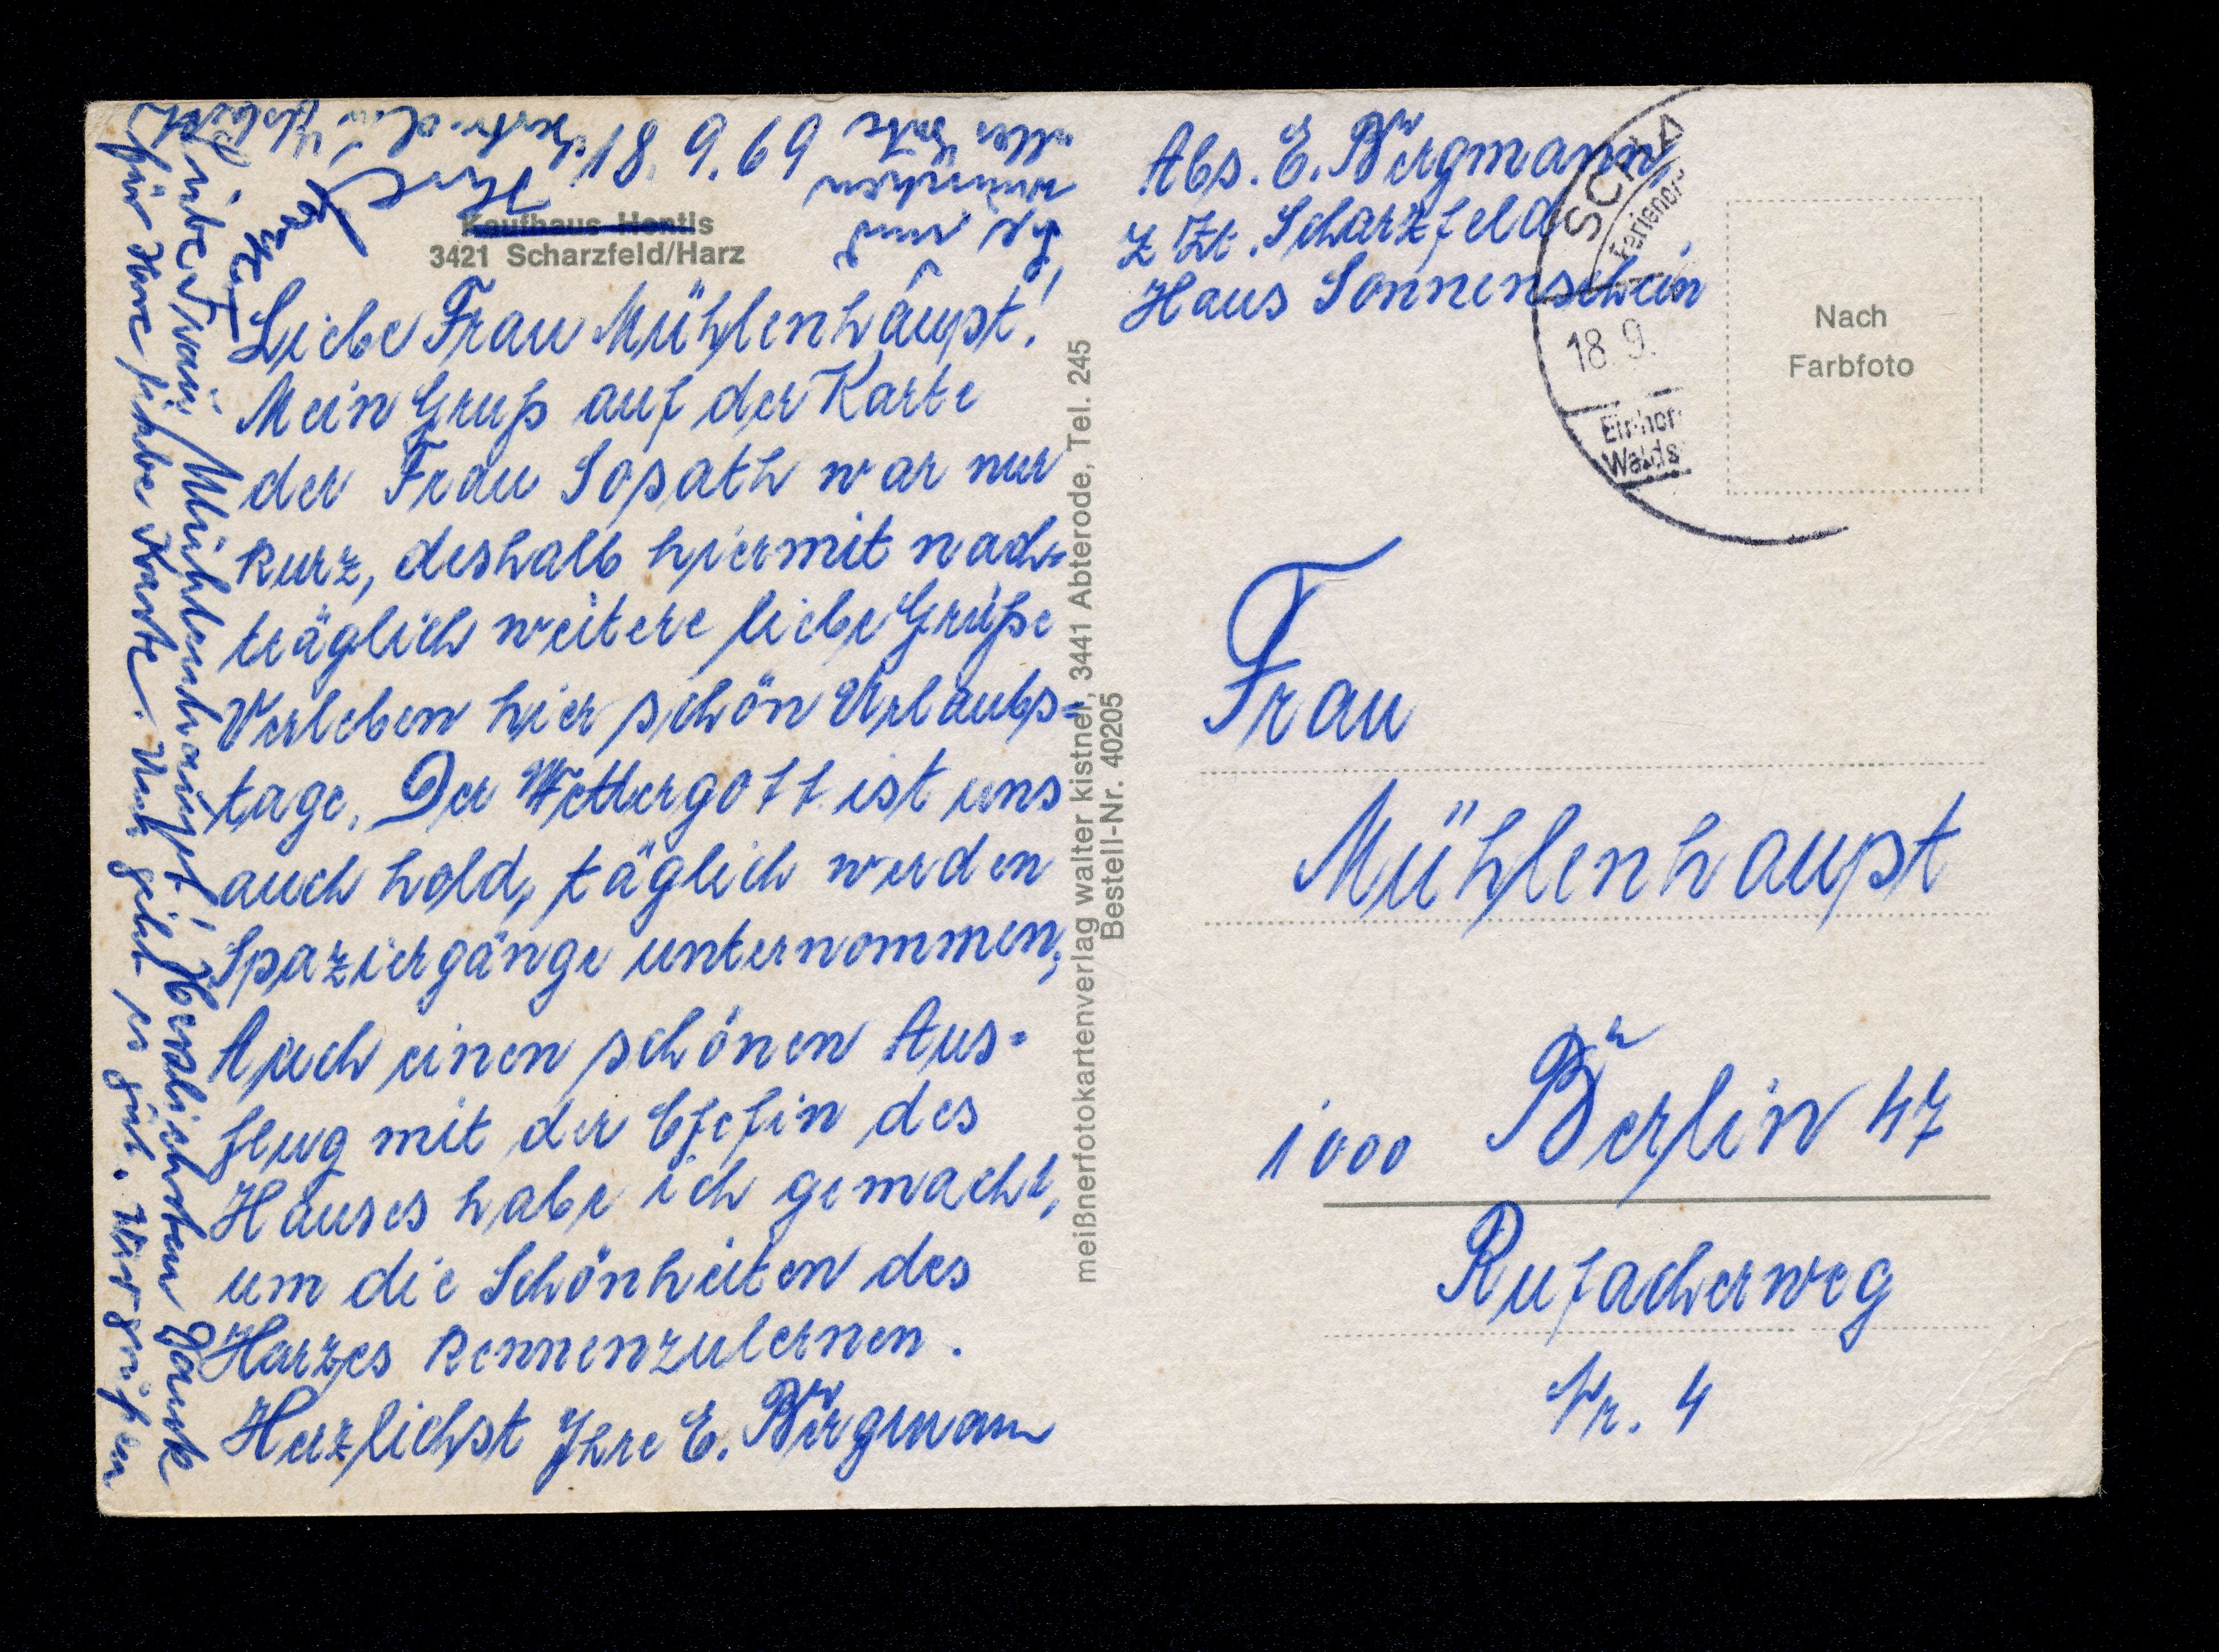 18. 9. 69
Kaufhaus Hentis
3421 Scharzfeld/Harz
Liebe Frau Mühlenhaupt!
Mein Gruß auf der Karte
der Frau Sopath war nur
kurz, deshalb hiermit nach-
träglich weitere liebe Grüße
Verleben hier schön Urlaubs=
tage. Der Wettergott ist uns
auch hold, täglich werden
Spaziergänge unternommen,
Auch einen schönen Aus-
flug mit der Chefin des
Hauses habe ich gemacht,
um die Schönheiten des
Harzes kennenzulernen.
Herzlichst Ihre E. Bergmann
Liebe Frau Mühlenhaupt! Herzlichsten Dank
für Ihre liebe Karte. Uns geht es gut. Wir grüßen
Sie und
wünschen
alles Gute
Ihre
meißnerfotokartenverlag walter kistner, 3441 Abterode, Tel. 245
Bestell-Nr. 40205
Abs. E. Bergmann,
z Zt. Scharzfeld
Haus Sonnenschein
SCHA
Ferienor
18. 9.
Einhor
Walds
Nach
Farbfoto
Frau
Mühlenhaupt
1000 Berlin 47
Rufacherweg
Nr. 4